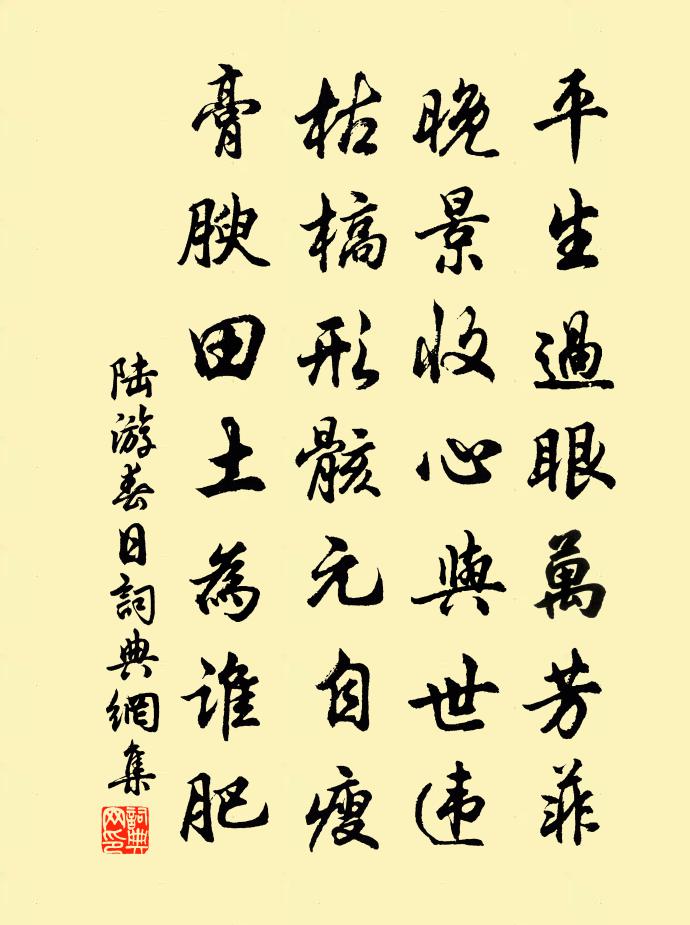 平生過眼萬芳菲
晚景收心與世违
枯槁形骸元自瘦
膏腴田土為誰肥
陆游春日詞典網集
詞典网印